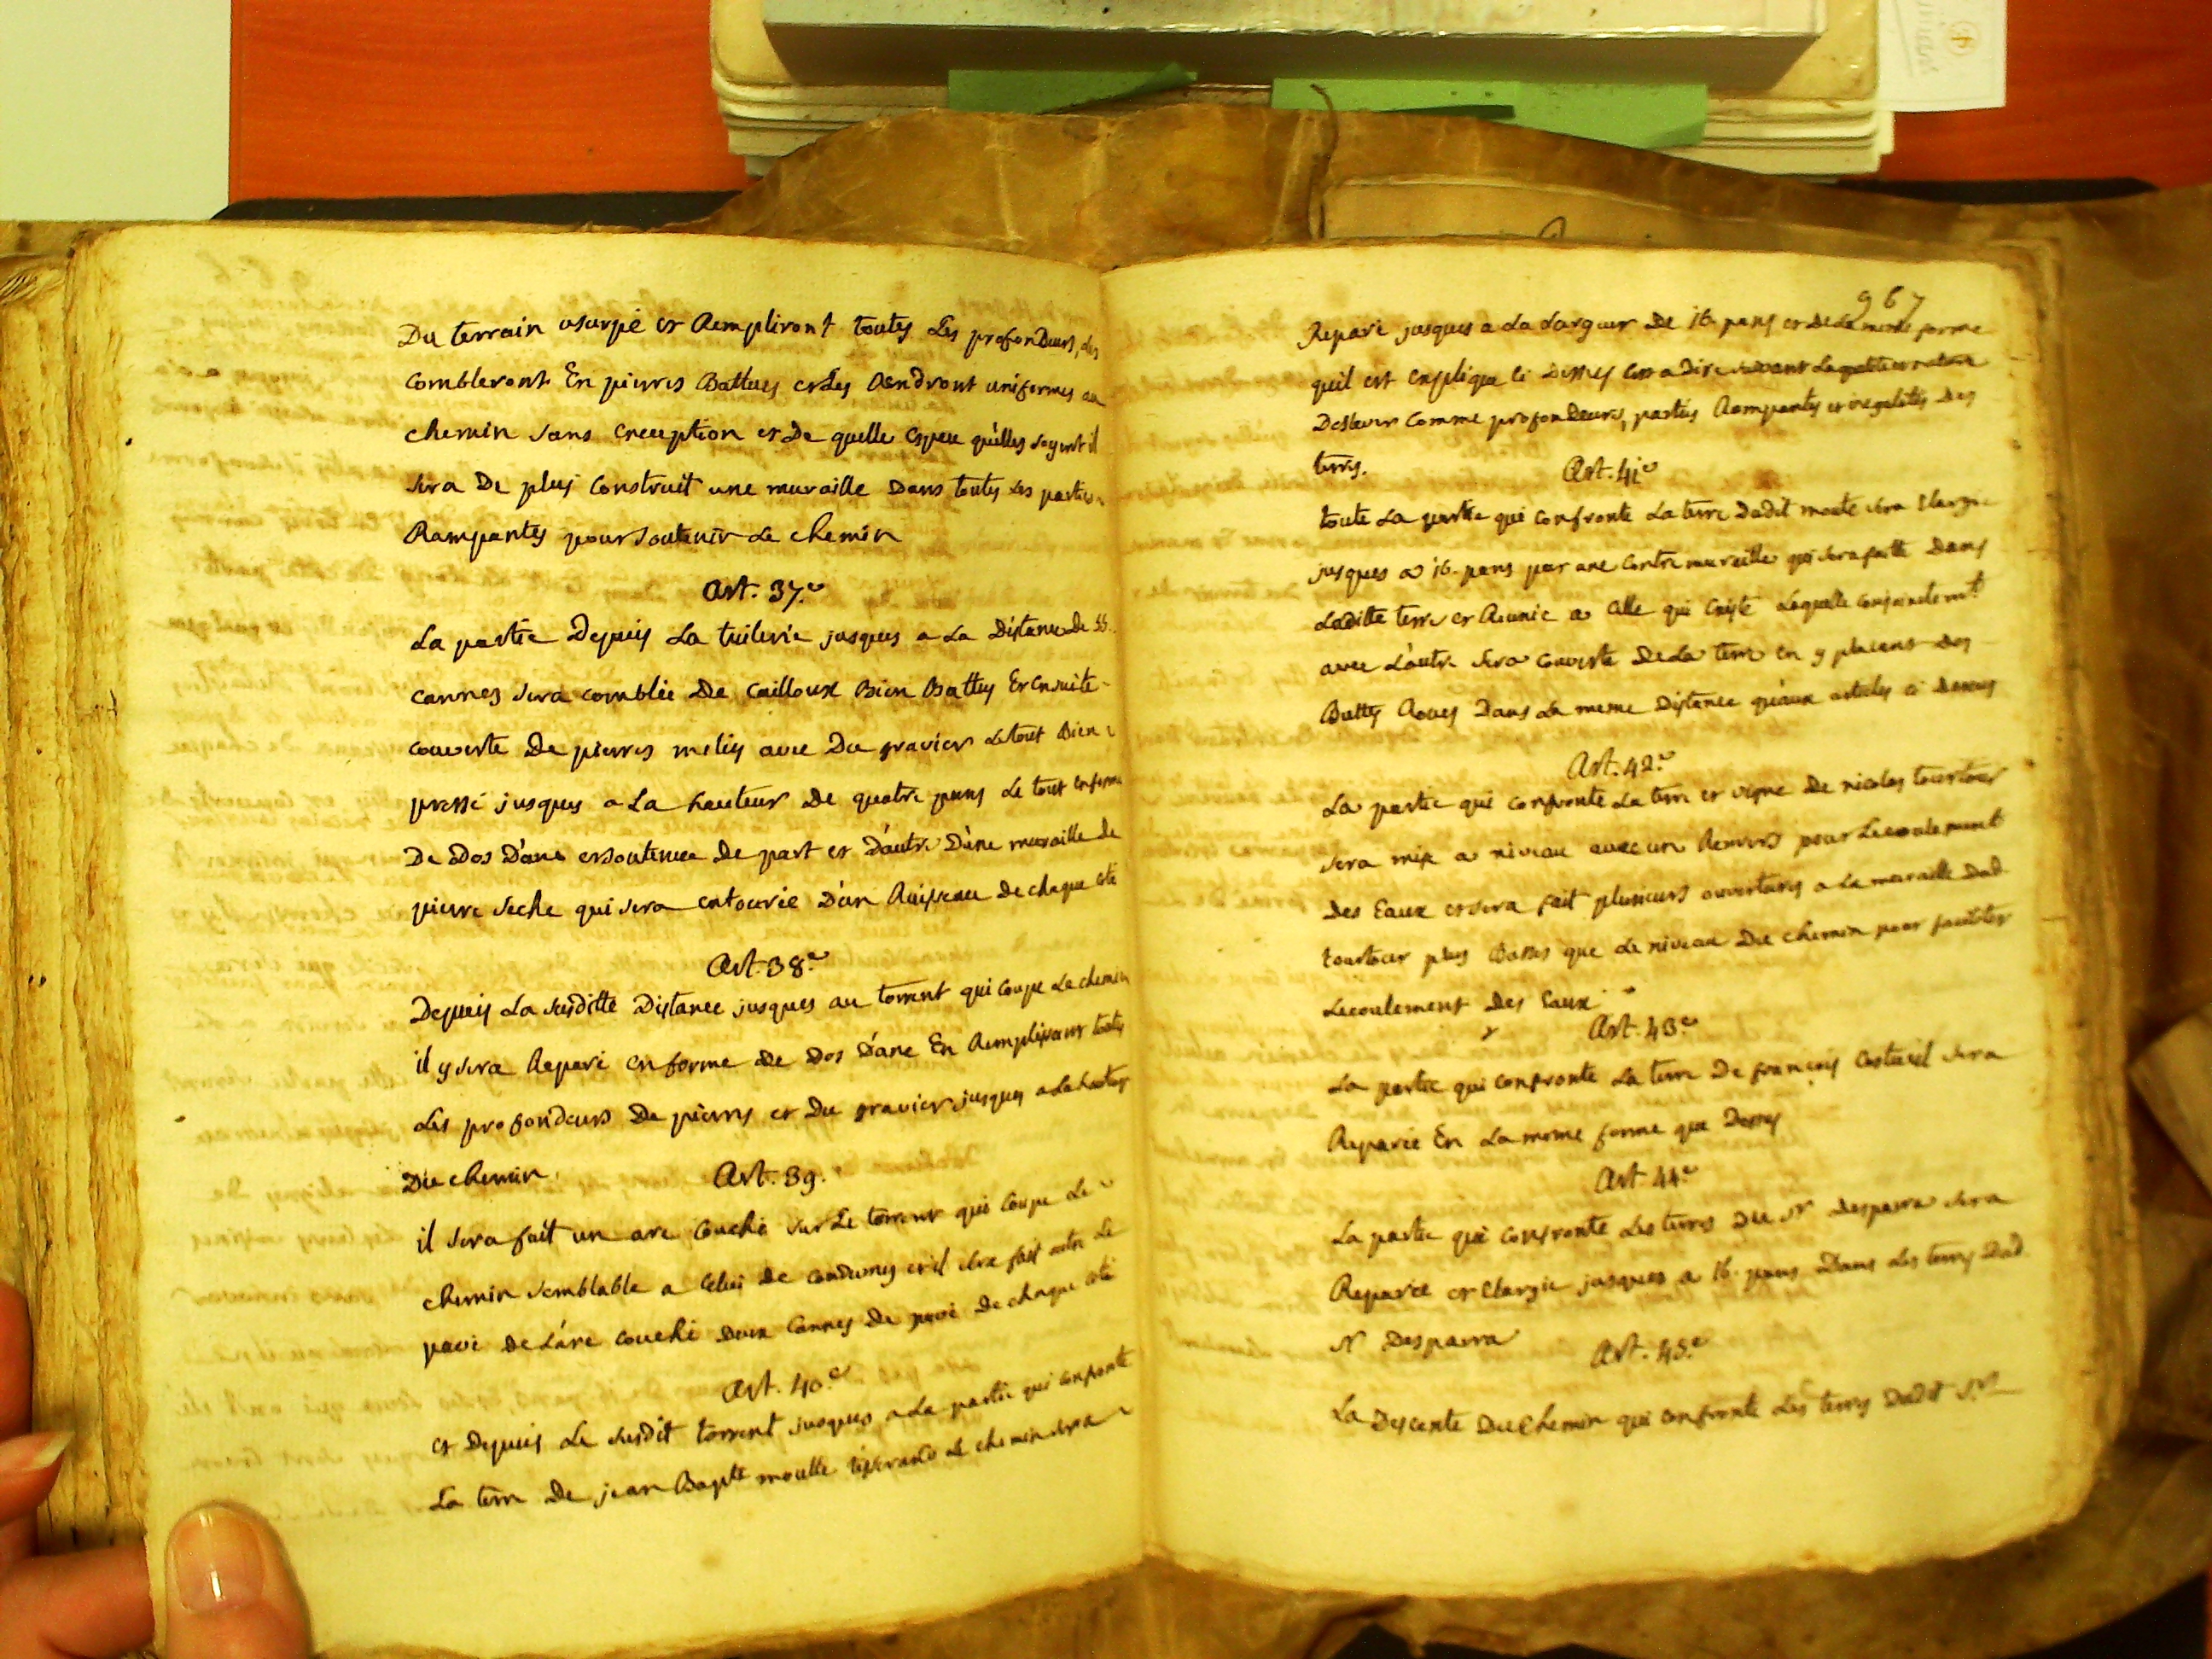 Du terrain usurpé et Rempliront toutes Les profondeurs, les
Combleront En pierres Battues et Les Rendront uniformes au
chemin sans Exception et De quelle Espece qu'elles soyent il
sera De plus Construit une muraille Dans toutes Les parties
Rampantes pour soutenir Le chemin
Art. 37.e
La partie Depuis La tuilerie jusques a La Distance De 55.
cannes sera comblée De Cailloux Bien Battus Et Ensuite
couverte De pierres melées avec Du gravier Le tout Bien
pressé jusques a La hauteur De quatre pans Le tout En forme
De Dos D'ane et soutenue De part et D'autre D'une muraille de
pierre seche qui sera entourée D'un Ruisseau De chaque coté
Art. 38.e
Depuis La susditte Distance jusques au torrent qui coupe Le chemin
il y sera Reparé en forme De Dos D'ane En Remplissant toutes
Les profondeurs De pierres et Du gravier jusques a la hauteur
Du chemin. Art. 39.
il sera fait un arc Couché sur Le torrent qui Coupe Le
chemin semblable a Celui De et il sera fait outre Le
pavé de L'arc Couché Deux Cannes De pavé De chaque coté
Art. 40.e
et Depuis Le susdit torrent jusques a La partie qui confronte
La terre De jean Bapte moutte tisserand Le chemin sera
967
Reparé jusques a La Largeur De 16 pans et De La meme forme
quil est Expliqué Ci Dessus Cest a Dire suivant La quantité et nature
Des Lieux Comme profondeurs, parties Rampantes et inegalités Des
terres. Art. 41.e
toute La partie qui confronte La terre Dudit moutte sera Elargie
jusques a 16. pans par une Contre muraille qui sera faitte Dans
Laditte terre et Reunie a Celle qui Existe Laquelle conjointemt
avec L'autre sera couverte De La terre En y placant Des
Buttes Roues Dans La meme Distance qu'aux articles ci Dessus
Art. 42.e
La partie qui confronte La terre et vigne De nicolas tourtour
sera mise a niveau avec un Revers pour Lecoulement
Des Eaux et sera fait plusieurs ouvertures a La muraille Dud.
tourtour plus Basses que Le niveau Du chemin pour faciliter
Lecoulement Des Eaux
Art. 43.e
La partie qui confronte La terre De francois sera
Reparée En La meme forme que Dessus
Art. 44.e
La partie qui confronte Les terres Du Sr Desparra sera
Reparée et Elargie jusques a 16. pans Dans Les terres Dud.
Sr Desparra
Art. 45.e
La Descente Du Chemin qui confronte Les terres Dudit Sr